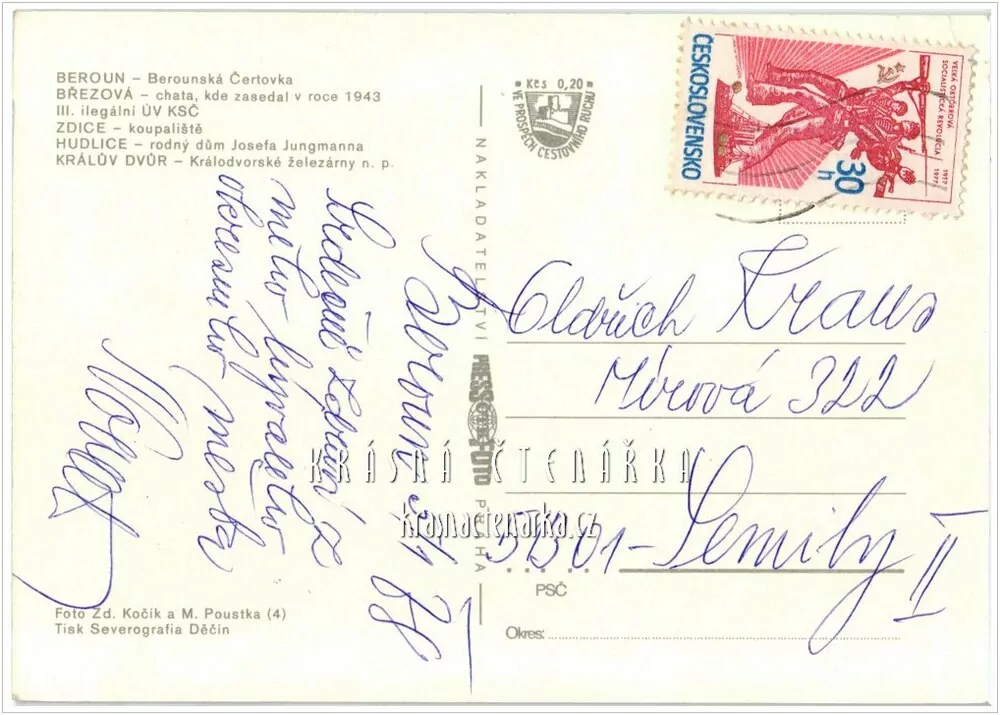 BEROUN – Berounská Čertovka
BŘEZOVÁ – chata, kde zasedal v roce 1943
III. ilegální ÚV KSČ
ZDICE – koupaliště
HUDLICE – rodný dům Josefa Jungmanna
KRÁLŮV DVŮR – Králodvorské železárny n. p.
Kčs 0,20
VE PROSPĚCH CESTOVNÍHO RUCHU
ČESKOSLOVENSKO
30 h
VELKÁ ŘÍJNOVÁ
SOCIALISTICKÁ REVOLUCE
1917
1977
NAKLADATELSTVÍ PRESSFOTO PRAHA
Beroun
Srdečné zdraví z
města
Oldřich Kraus
Mírová 322
51301 – Semily II
KRÁSNÁ ČTENÁŘKA
krasnactenarka.cz
PSČ
Okres:
Foto Zd. Kočík a M. Poustka (4)
Tisk Severografia Děčín